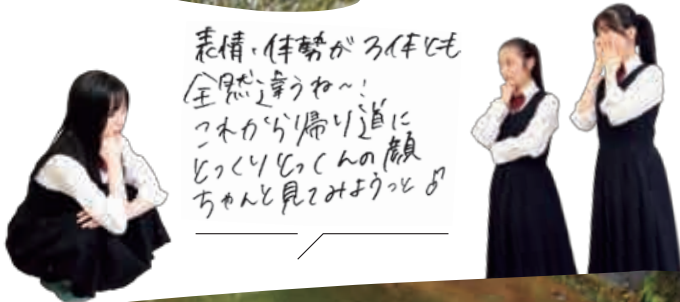 表情・体勢が3体とも
全然違うね〜!
これから帰り道に
とっくりとっくんの顔
ちゃんと見てみようっと♪